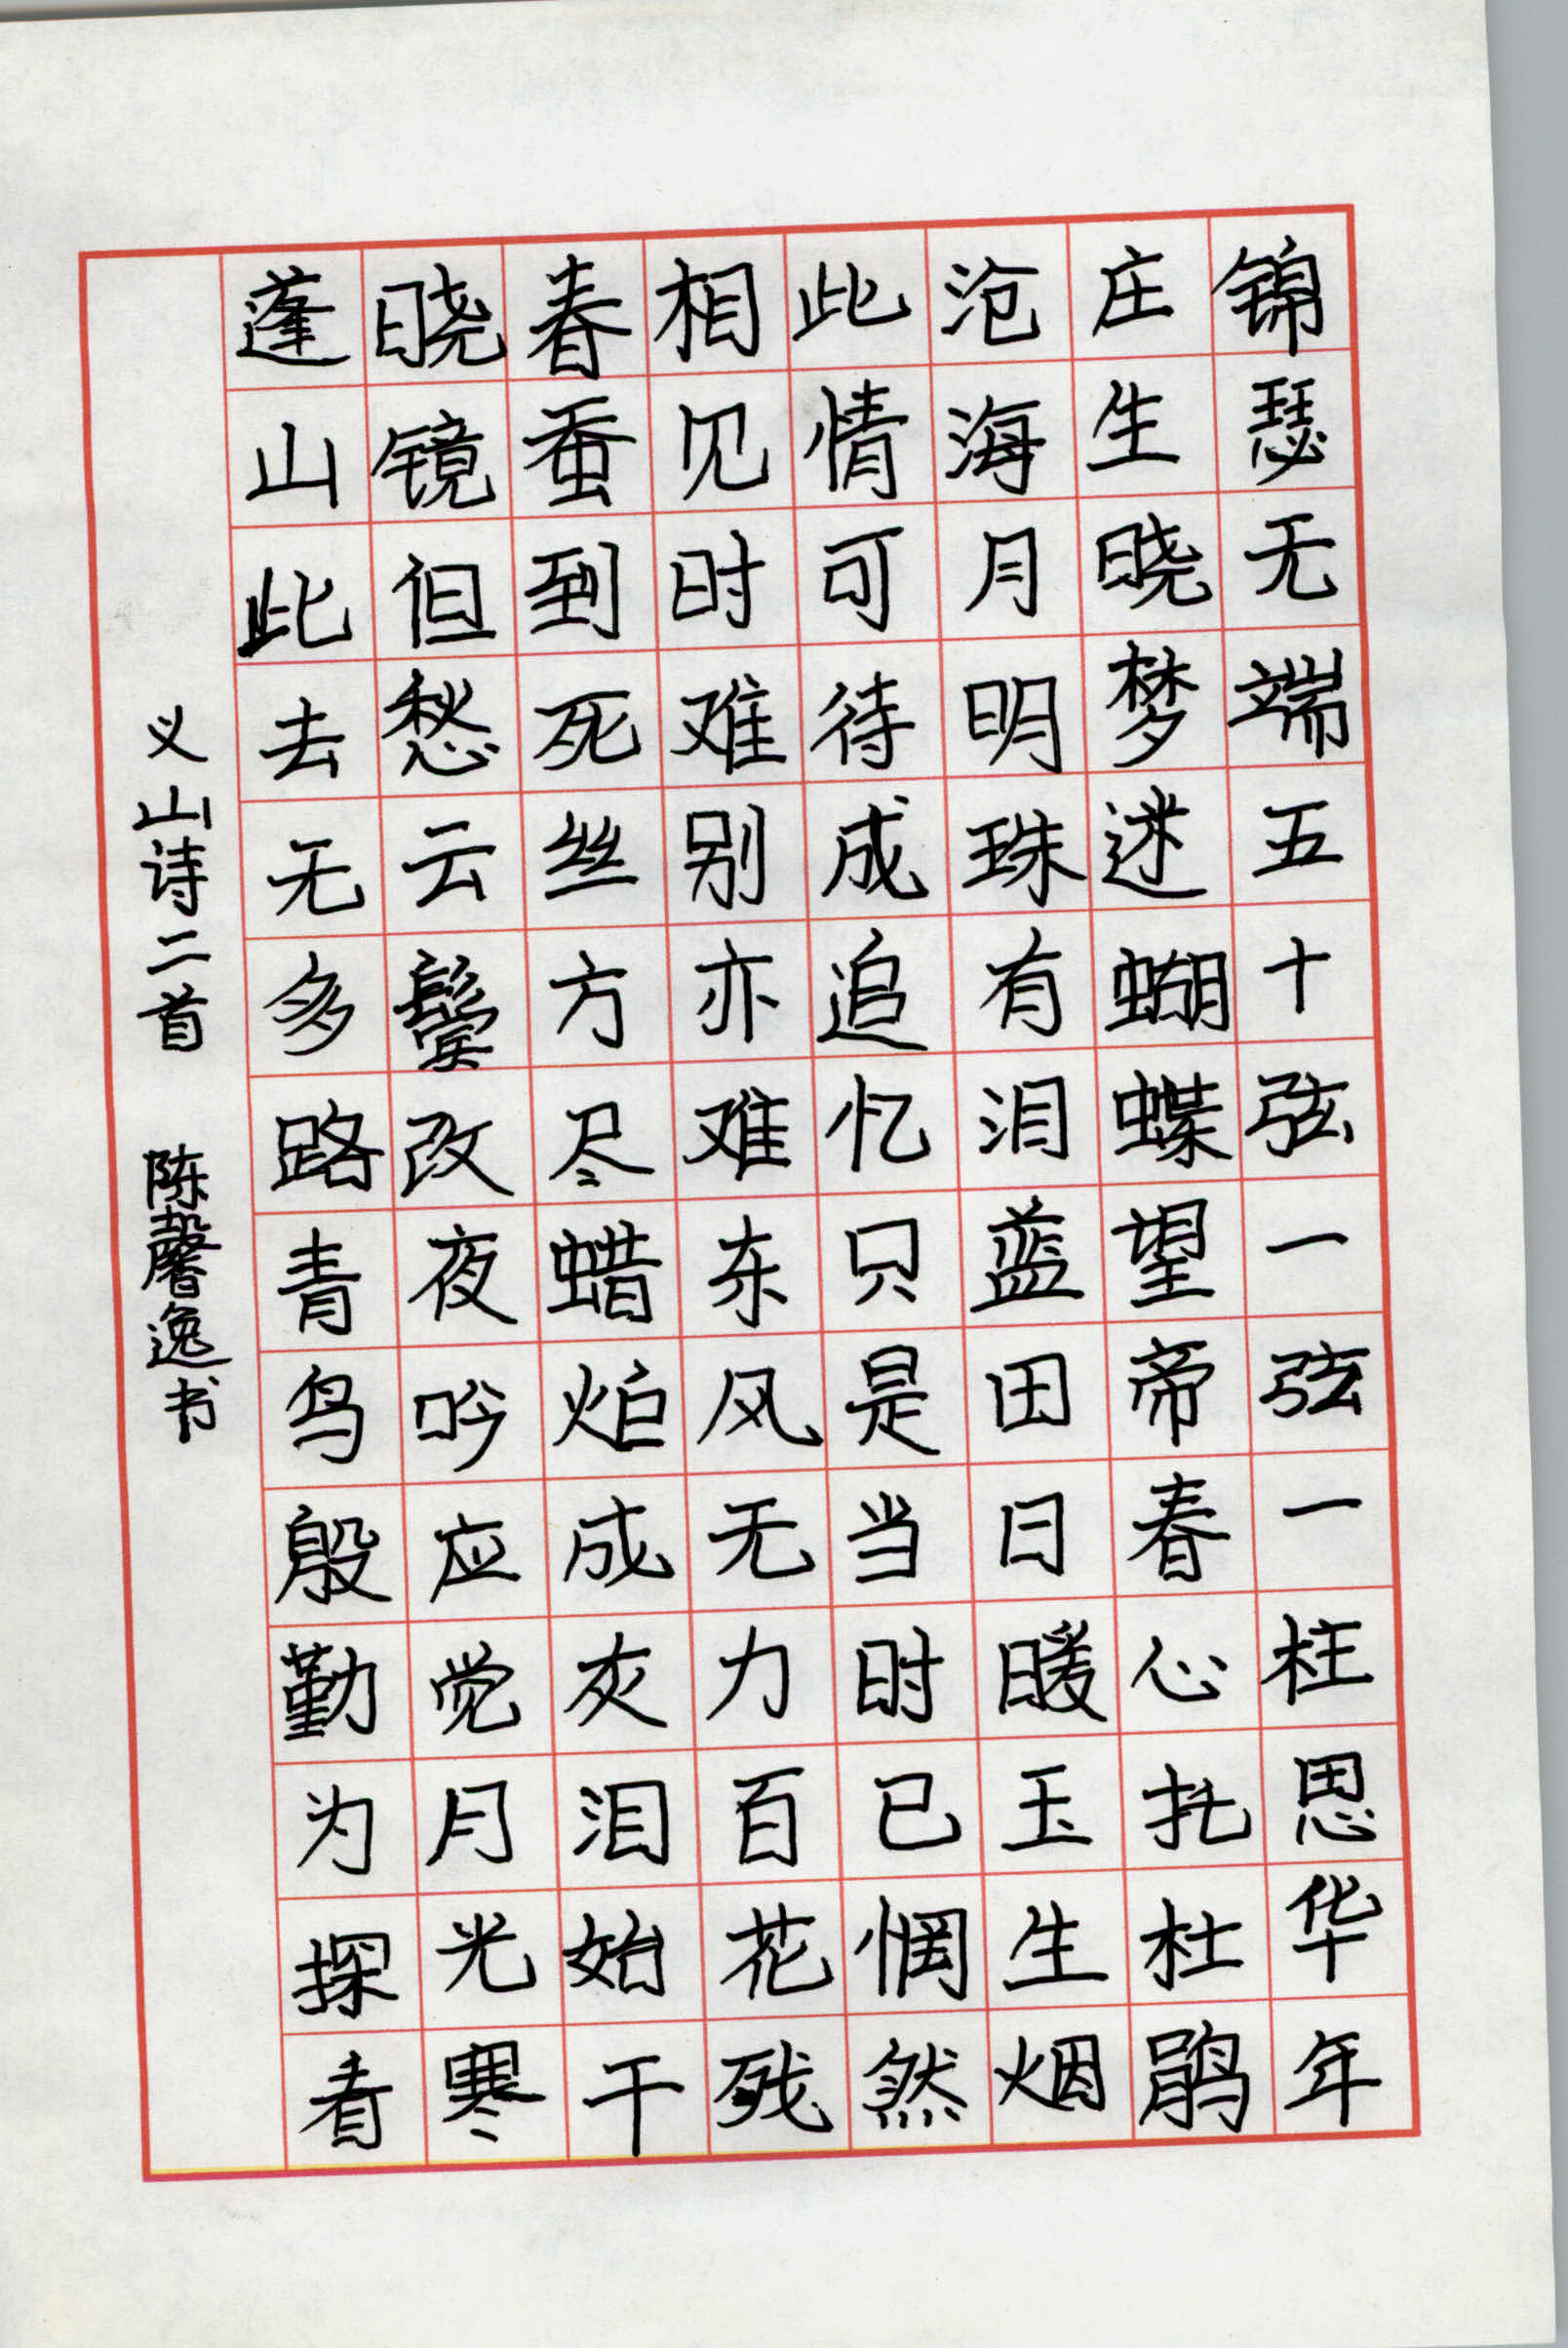 锦瑟无端五十弦一弦一柱思华年
庄生晓梦迷蝴蝶望帝春心托杜鹃
沧海月明珠有泪蓝田日暖玉生烟
此情可待成追忆只是当时已惘然
相见时难别亦难东风无力百花残
春蚕到死丝方尽蜡炬成灰泪始干
晓镜但愁云鬓改夜吟应觉月光寒
蓬山此去无多路青鸟殷勤为探看
义山诗二首 陈馨逸书